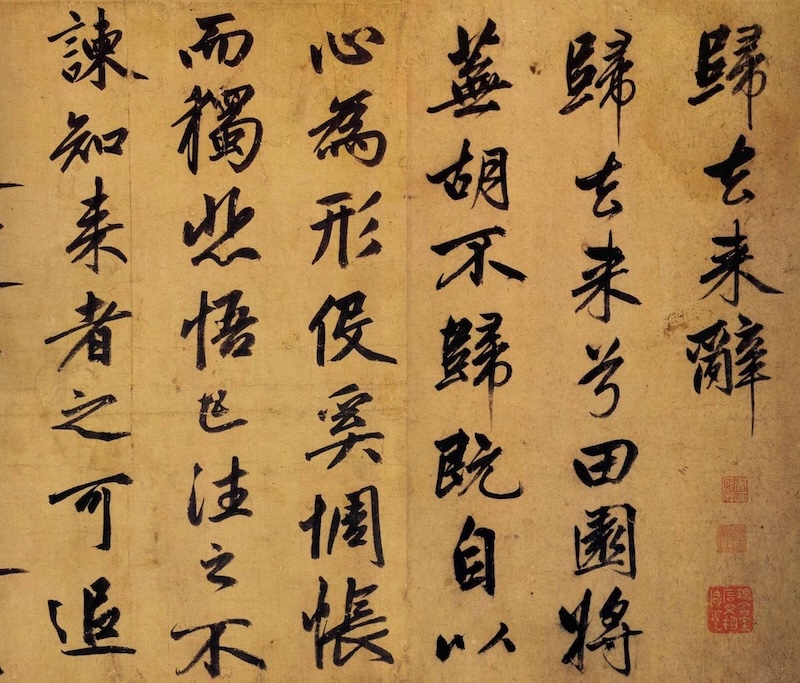 歸去来辭
歸去来兮田園將
蕪胡不歸既自以
心為形役奚惆悵
而獨悲悟已往之不
諫知来者之可追